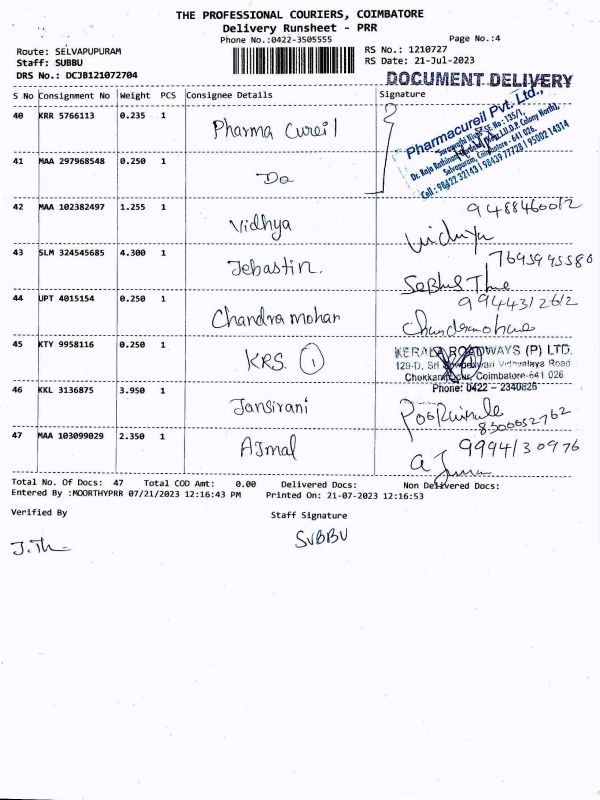 THE PROFESSIONAL COURIERS, COIMBATORE
Delivery Runsheet - PRR
Phone No.:0422-3505555
Page No.:4
Route: SELVAPUPURAM
RS No.: 1210727
Staff: SUBBU
RS Date: 21-Jul-2023
DRS No.: DCJB121072704
DOCUMENT DELIVERY
S No Consignment No Weight PCS Consignee Details Signature
40 KRR 5766113 0.235 1 Pharma Cureil
Pharmacureil Pvt. Ltd.,
41 MAA 297968548 0.250 1 Do
42 MAA 102382497 1.255 1 Vidhya
43 SLM 324545685 4.300 1 Jebastin.
7695945580
44 UPT 4015154 0.250 1 Chandra mohan
9944312612
45 KTY 9958116 0.250 1 KRS. 1
KERALA ROADWAYS (P) LTD.
129-D, Sri Vidyalaya Road
Coimbatore-641 026
Phone: 0422 - 2340826
46 KKL 3136875 3.950 1 Jansirani
8300052762
47 MAA 103099029 2.350 1 AJmal
9994130976
Total No. Of Docs: 47 Total COD Amt: 0.00 Delivered Docs: Non Delivered Docs:
Entered By :MOORTHYPRR 07/21/2023 12:16:43 PM Printed On: 21-07-2023 12:16:53
Verified By
Staff Signature
SUBBU